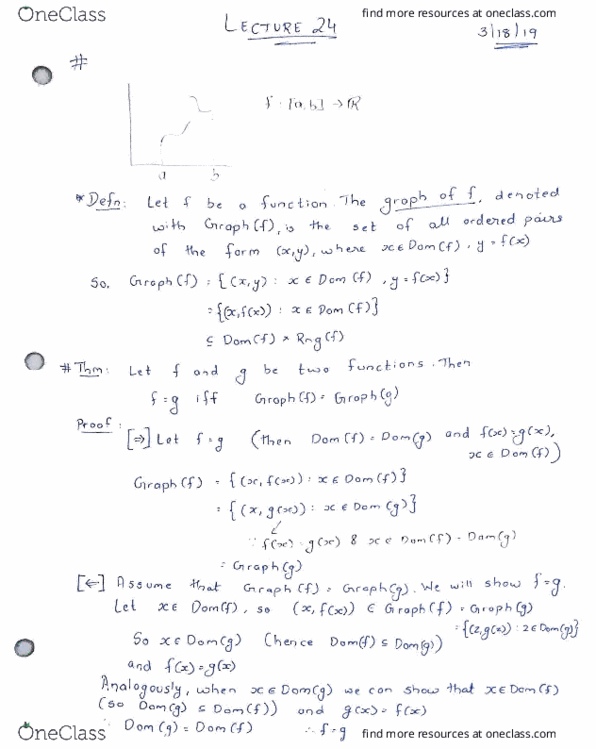 OneClass
find more resources at oneclass.com
LECTURE 24
3/18/19
#
f : [a,b] → R
a b
* Defn: Let f be a function. The graph of f, denoted
with Graph(f), is the set of all ordered pairs
of the form (x,y), where x ∈ Dom(f), y = f(x)
So, Graph(f) = {(x,y) : x ∈ Dom(f), y = f(x)}
= {(x, f(x)) : x ∈ Dom(f)}
⊆ Dom(f) × Rng(f)
# Thm: Let f and g be two functions. Then
f = g iff Graph(f) = Graph(g)
Proof:
[⇒] Let f = g (then Dom(f) = Dom(g) and f(x) = g(x),
x ∈ Dom(f))
Graph(f) = {(x, f(x)) : x ∈ Dom(f)}
= {(x, g(x)) : x ∈ Dom(g)}
∵ f(x) = g(x) & x ∈ Dom(f) = Dom(g)
= Graph(g)
[⇐] Assume that Graph(f) = Graph(g). We will show f = g.
Let x ∈ Dom(f), so (x, f(x)) ∈ Graph(f) = Graph(g)
= {(z, g(z)) : z ∈ Dom(g)}
So x ∈ Dom(g) (hence Dom(f) ⊆ Dom(g))
and f(x) = g(x)
Analogously, when x ∈ Dom(g) we can show that x ∈ Dom(f)
(so Dom(g) ⊆ Dom(f)) and g(x) = f(x)
∴ Dom(g) = Dom(f) ∴ f = g
OneClass
find more resources at oneclass.com